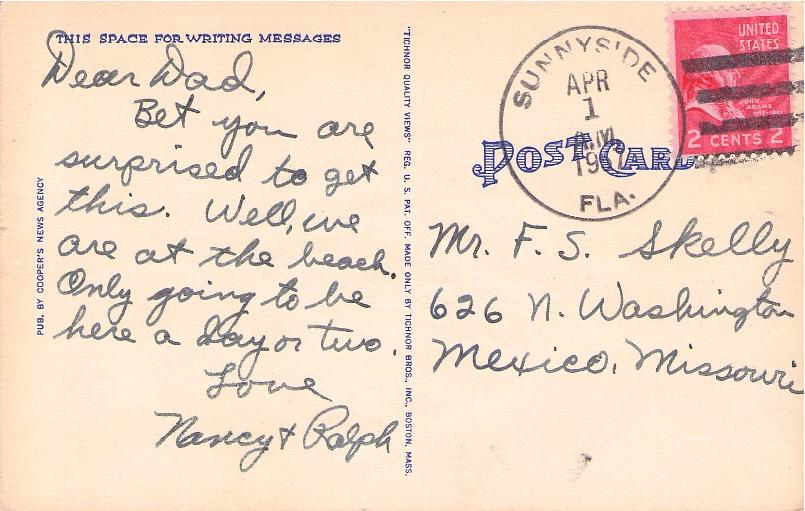 THIS SPACE FOR WRITING MESSAGES
Dear Dad,
Bet you are
surprised to get
this. Well, we
are at the beach.
Only going to be
here a day or two.
Love
Nancy & Ralph
PUB. BY COOPER'S NEWS AGENCY
"TICHNOR QUALITY VIEWS" REG. U. S. PAT. OFF. MADE ONLY BY TICHNOR BROS., INC., BOSTON, MASS.
SUNNYSIDE
APR
1
A.M
FLA.
UNITED
STATES
JOHN
ADAMS
2 CENTS 2
POST CARD
Mr. F. S. Skelly
626 N. Washington
Mexico, Missouri